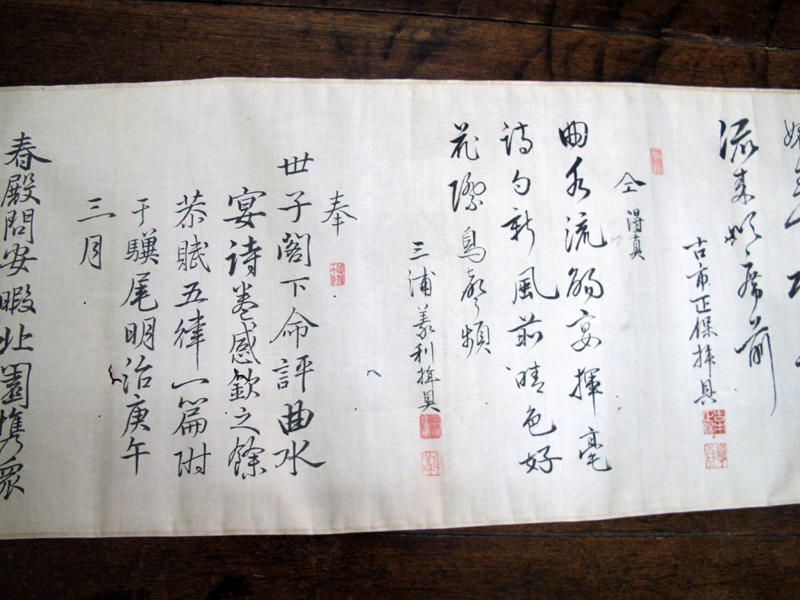 流来席前
古市正保拝具
仝 得真
曲水流觴宴揮毫
詩句新風前晴色好
花際鳥聲頻
三浦義利拝具
奉
世子閣下命評曲水
宴詩巻感欽之餘
恭賦五律一篇附
于驥尾明治庚午
三月
春殿問安暇北園衆